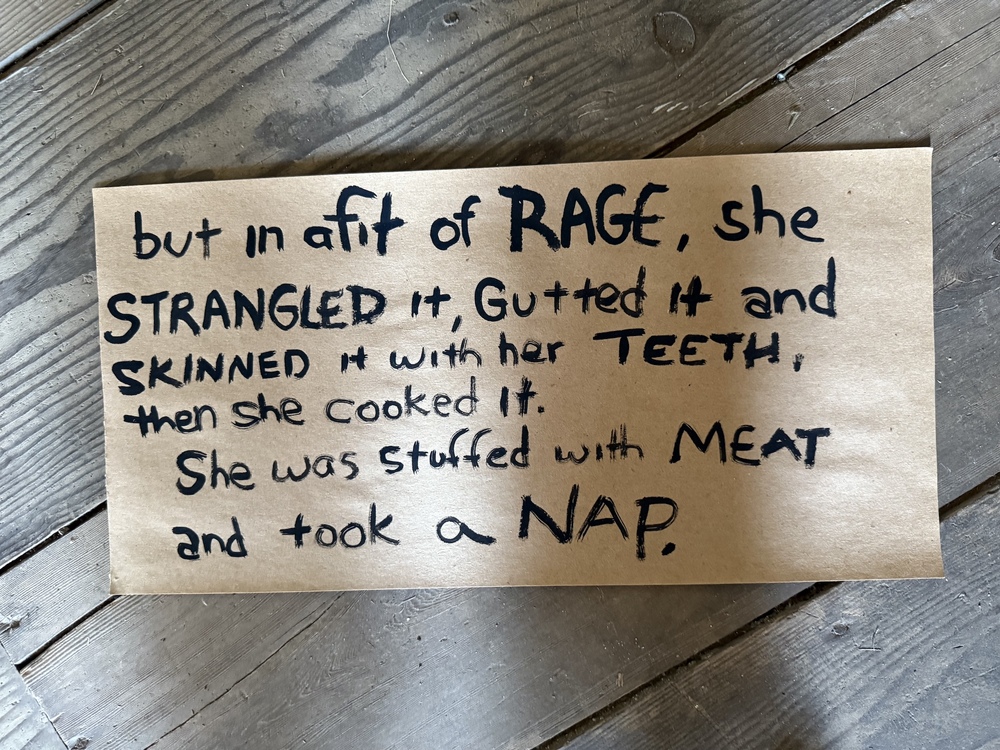 but in a fit of RAGE, she
STRANGLED it, Gutted it and
SKINNED it with her TEETH,
then she cooked it.
She was stuffed with MEAT
and took a NAP.